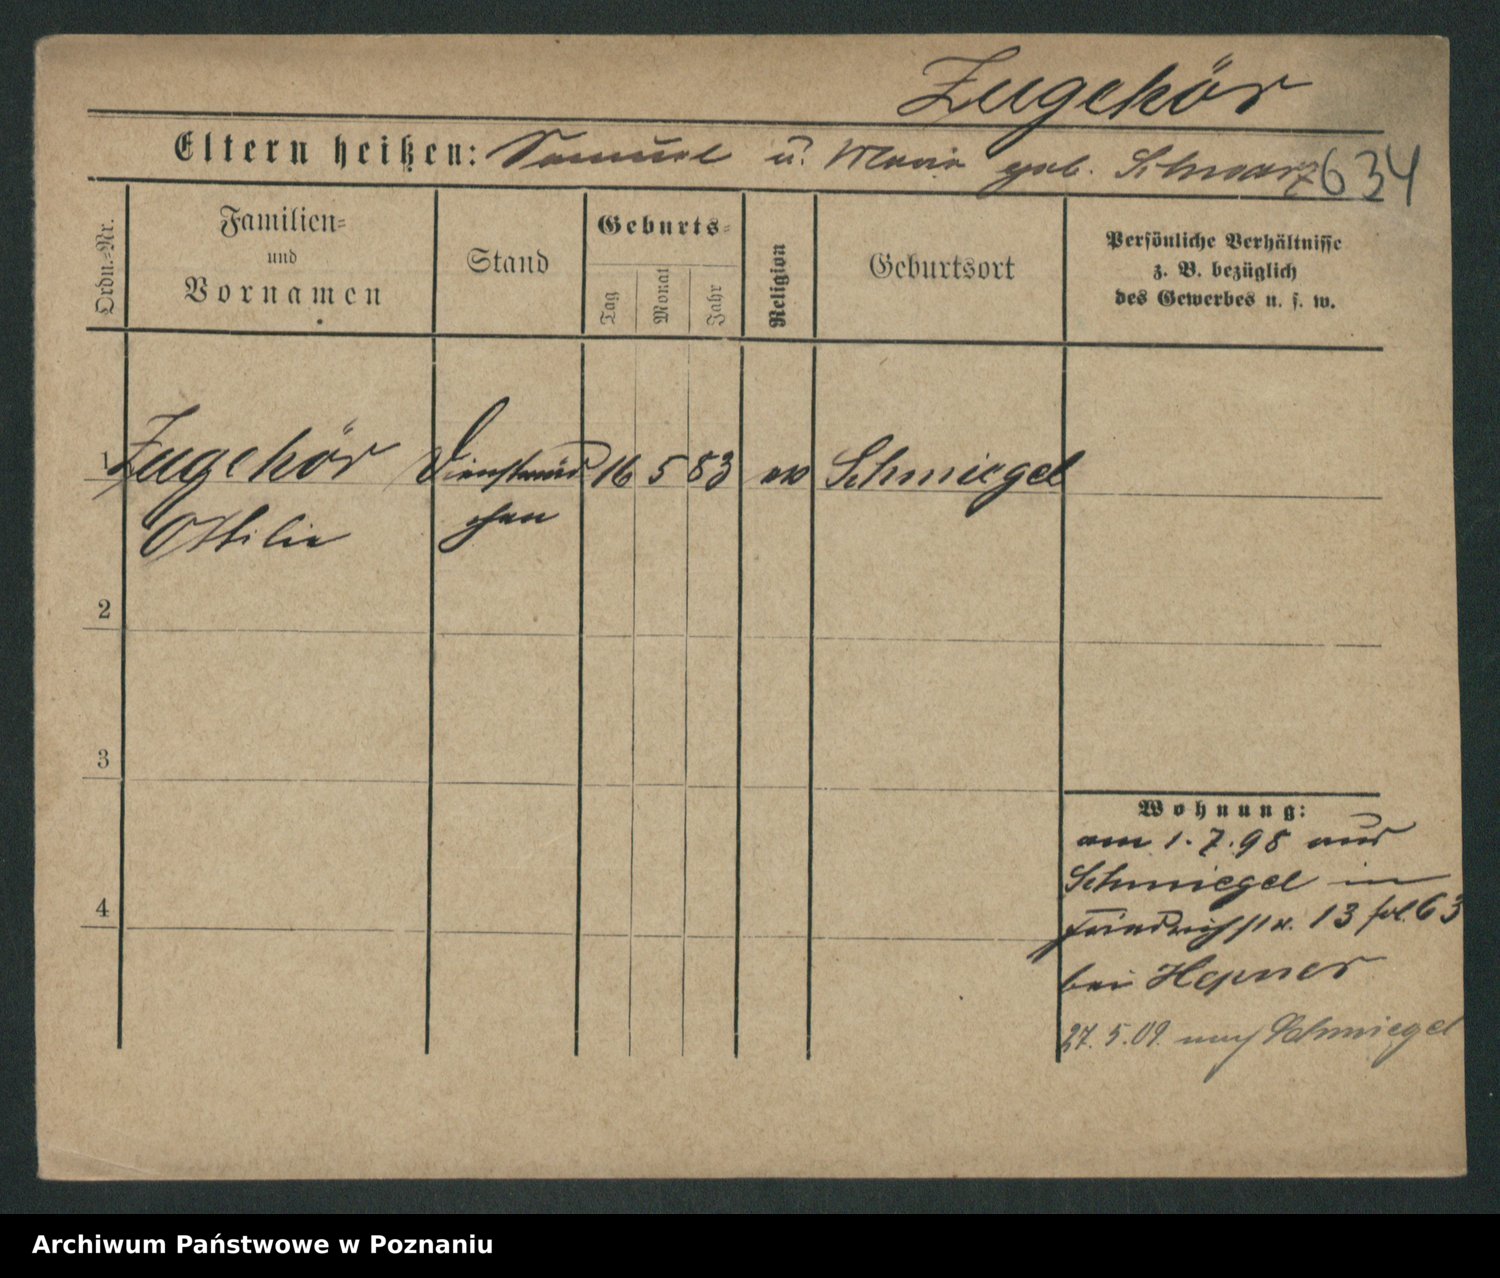 Zugehör
Eltern heißen: Samuel u. Maria geb. Schwarz 634
Ordn.=Nr.
Familien=
und
Vornamen
Stand
Geburts=
Tag
Monat
Jahr
Religion
Geburtsort
Persönliche Verhältnisse
z. B. bezüglich
des Gewerbes u. s. w.
1 Zugehör Dienstmäd 16 5 83 ev Schmiegel
Ottilie chen
2
3
4
Wohnung:
am 1.7.98 aus
Schmiegel in
Friedrichstr. 13 fol. 63
bei Hepner
27.5.09. nach Schmiegel
Archiwum Państwowe w Poznaniu